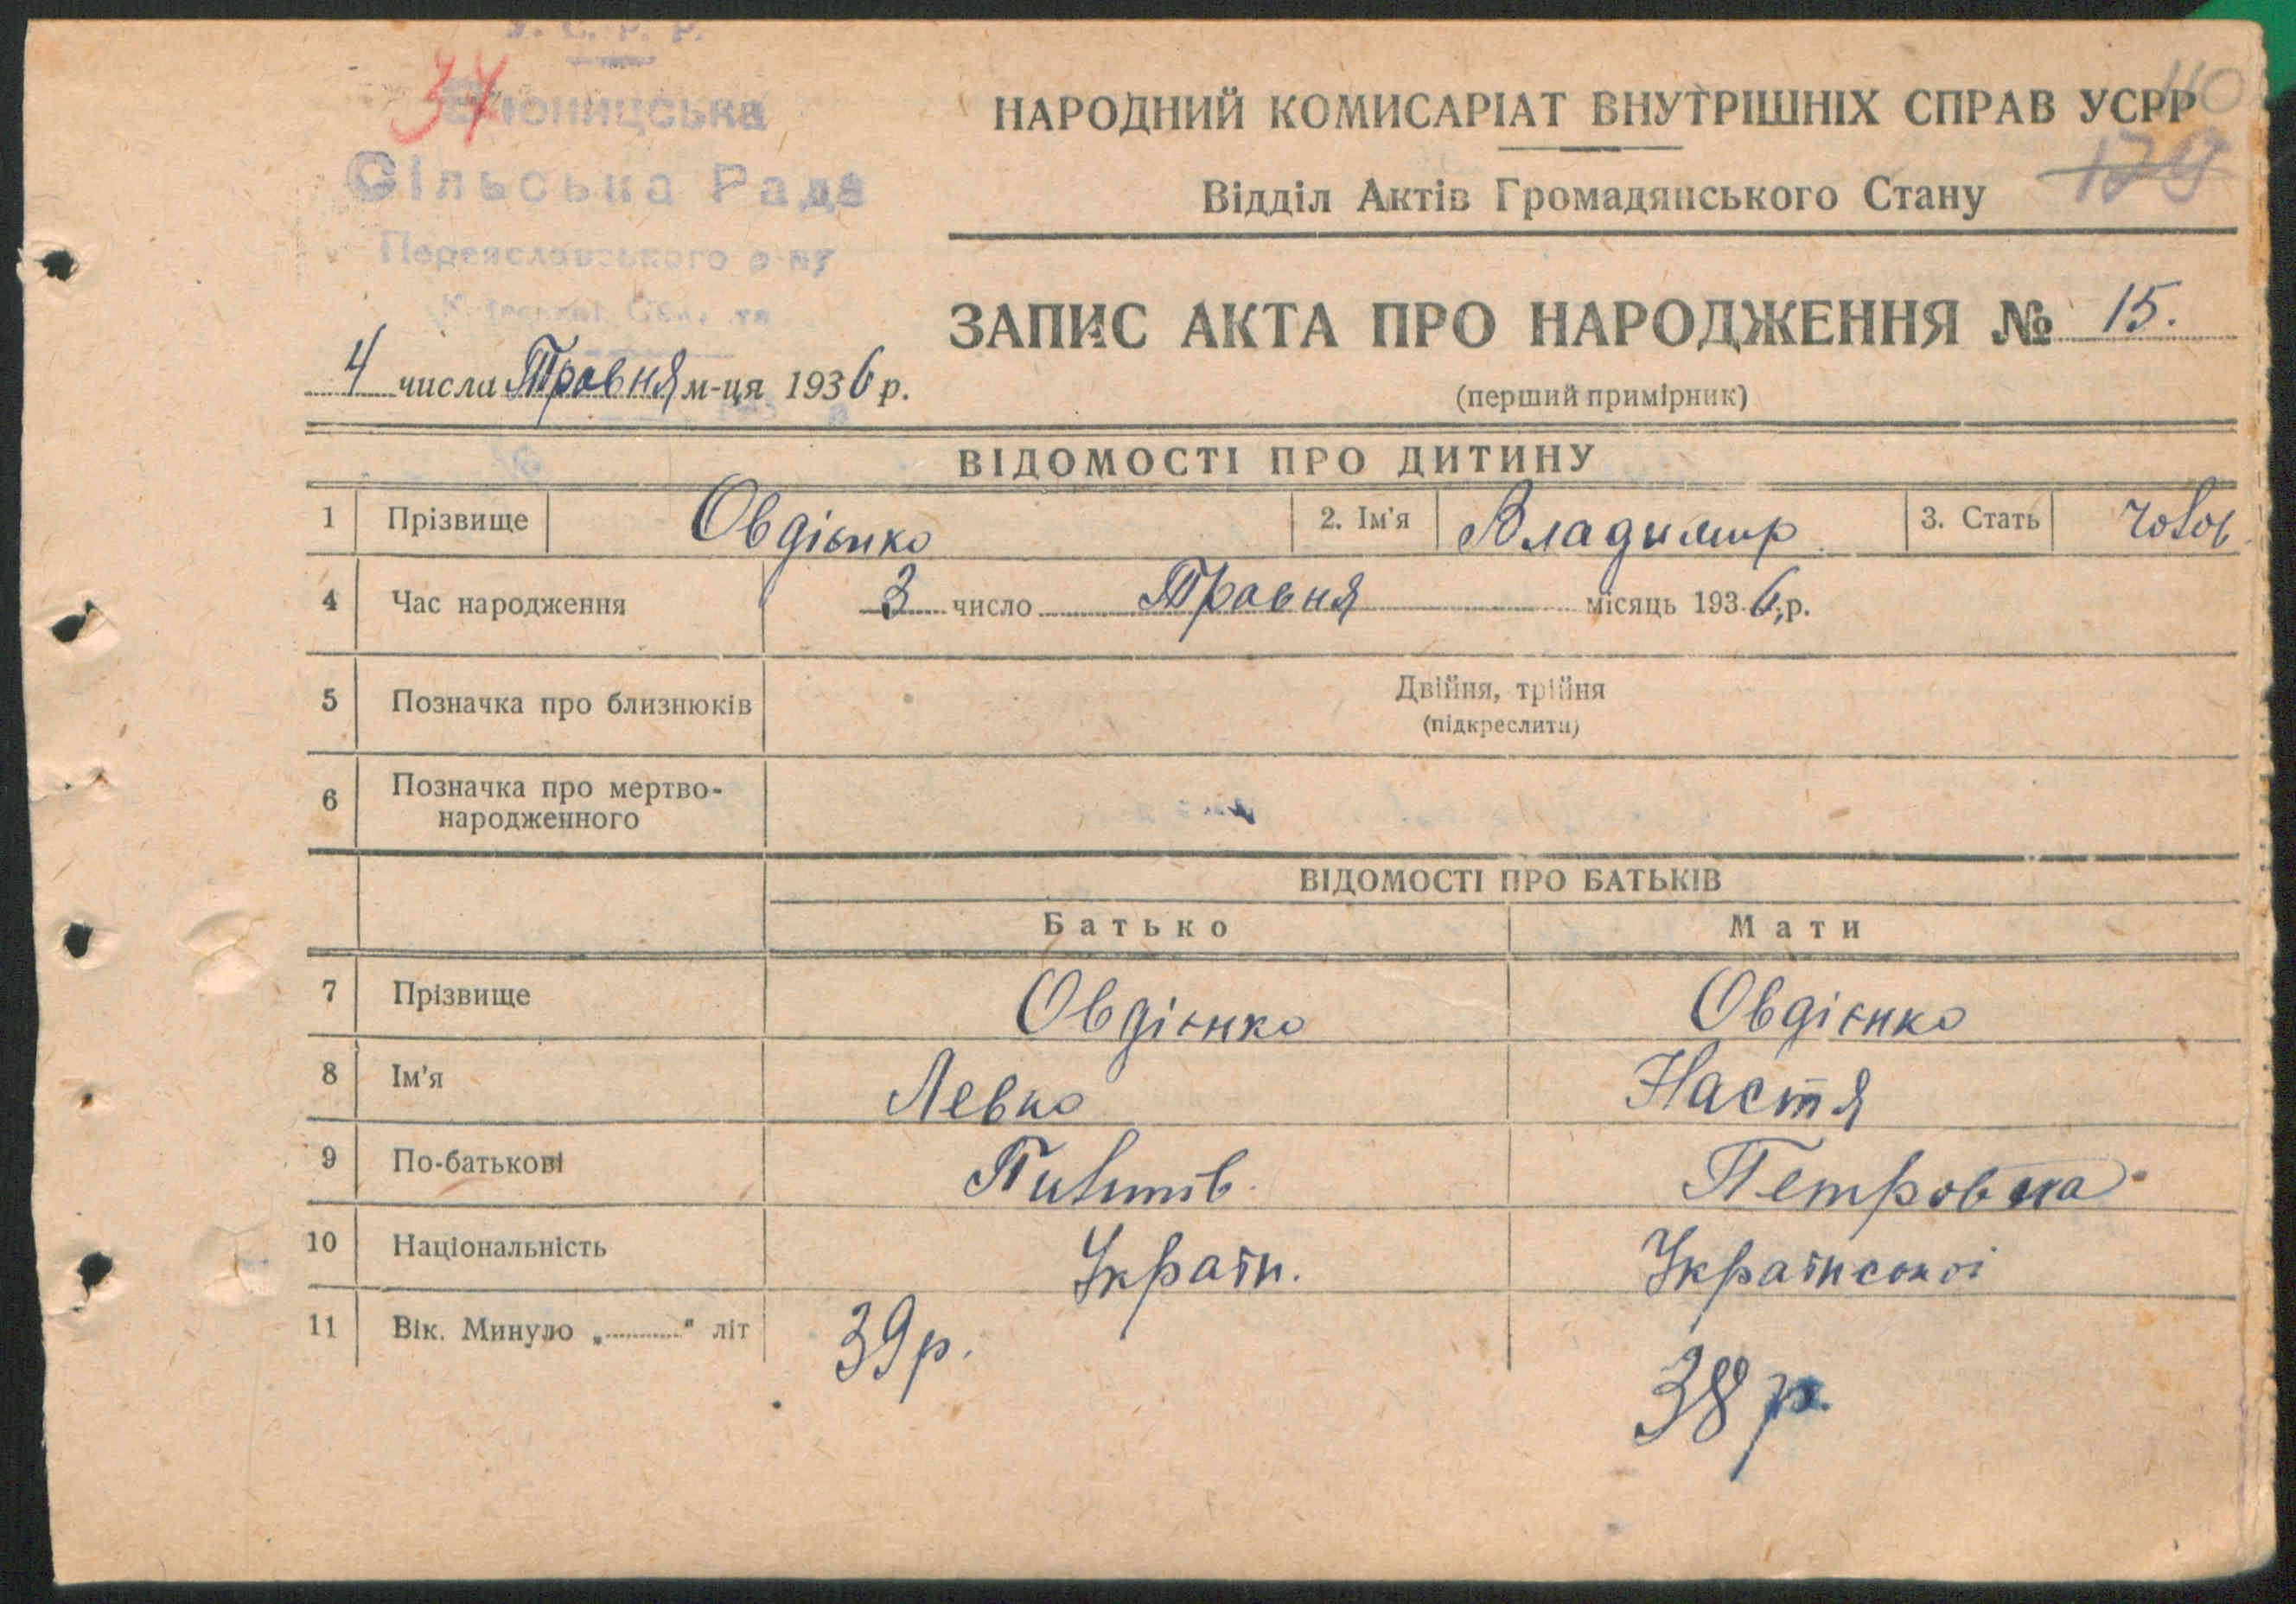 У. С. Р. Р.
34
В'юницська
Сільська Рада
Переяславського р-ну
110
НАРОДНИЙ КОМИСАРІАТ ВНУТРІШНІХ СПРАВ УСРР
179
Відділ Актів Громадянського Стану
ЗАПИС АКТА ПРО НАРОДЖЕННЯ № 15.
4 числа Травня м-ця 1936 р.
(перший примірник)
ВІДОМОСТІ ПРО ДИТИНУ
1 Прізвище Овдієнко 2. Ім'я Владимир 3. Стать чолов
4 Час народження 3 число Травня місяць 1936, р.
5 Позначка про близнюків Двійня, трійня
(підкреслити)
6 Позначка про мертво-
народженного
ВІДОМОСТІ ПРО БАТЬКІВ
Батько Мати
7 Прізвище Овдієнко Овдієнко
8 Ім'я Левко Настя
9 По-батькові Петровна
10 Національність Україн. Української
11 Вік. Минуло „............" літ 39 р. 38 р.